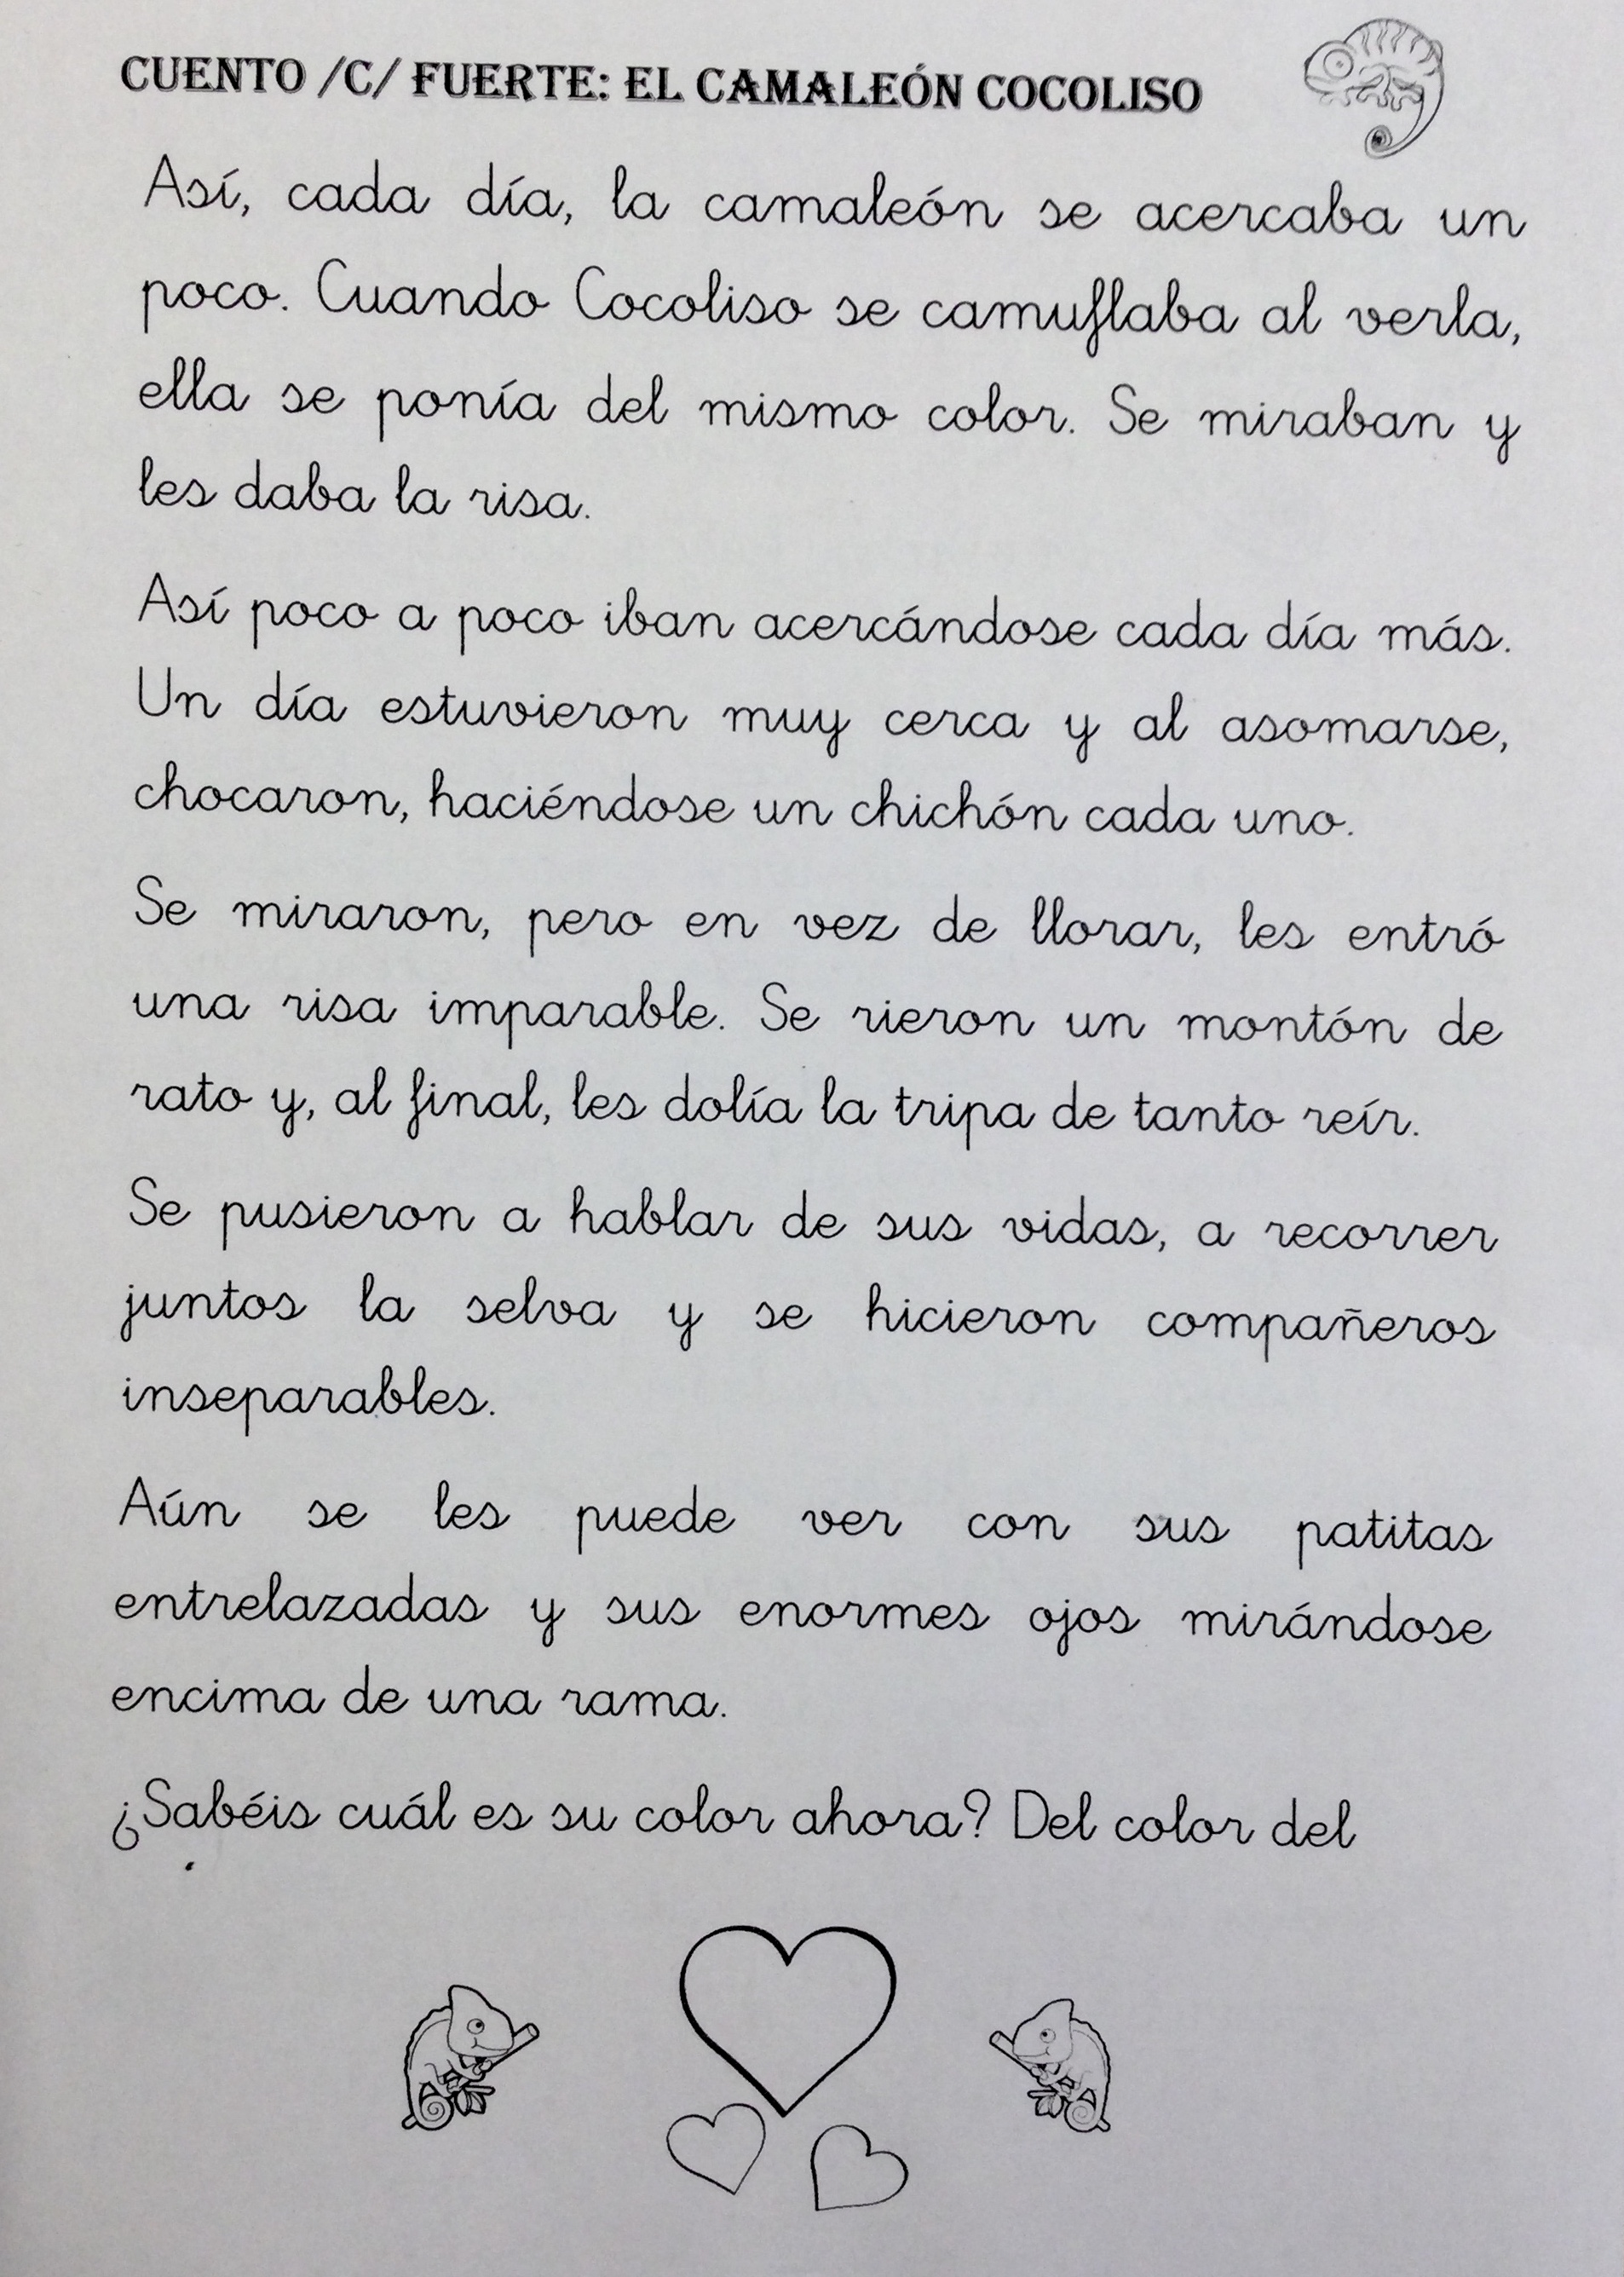 CUENTO /C/ FUERTE: EL CAMALEÓN COCOLISO
Así, cada día, la camaleón se acercaba un
poco. Cuando Cocoliso se camuflaba al verla,
ella se ponía del mismo color. Se miraban y
les daba la risa.
Así poco a poco iban acercándose cada día más.
Un día estuvieron muy cerca y al asomarse,
chocaron, haciéndose un chichón cada uno.
Se miraron, pero en vez de llorar, les entró
una risa imparable. Se rieron un montón de
rato y, al final, les dolía la tripa de tanto reír.
Se pusieron a hablar de sus vidas, a recorrer
juntos la selva y se hicieron compañeros
inseparables.
Aún se les puede ver con sus patitas
entrelazadas y sus enormes ojos mirándose
encima de una rama.
¿Sabéis cuál es su color ahora? Del color del